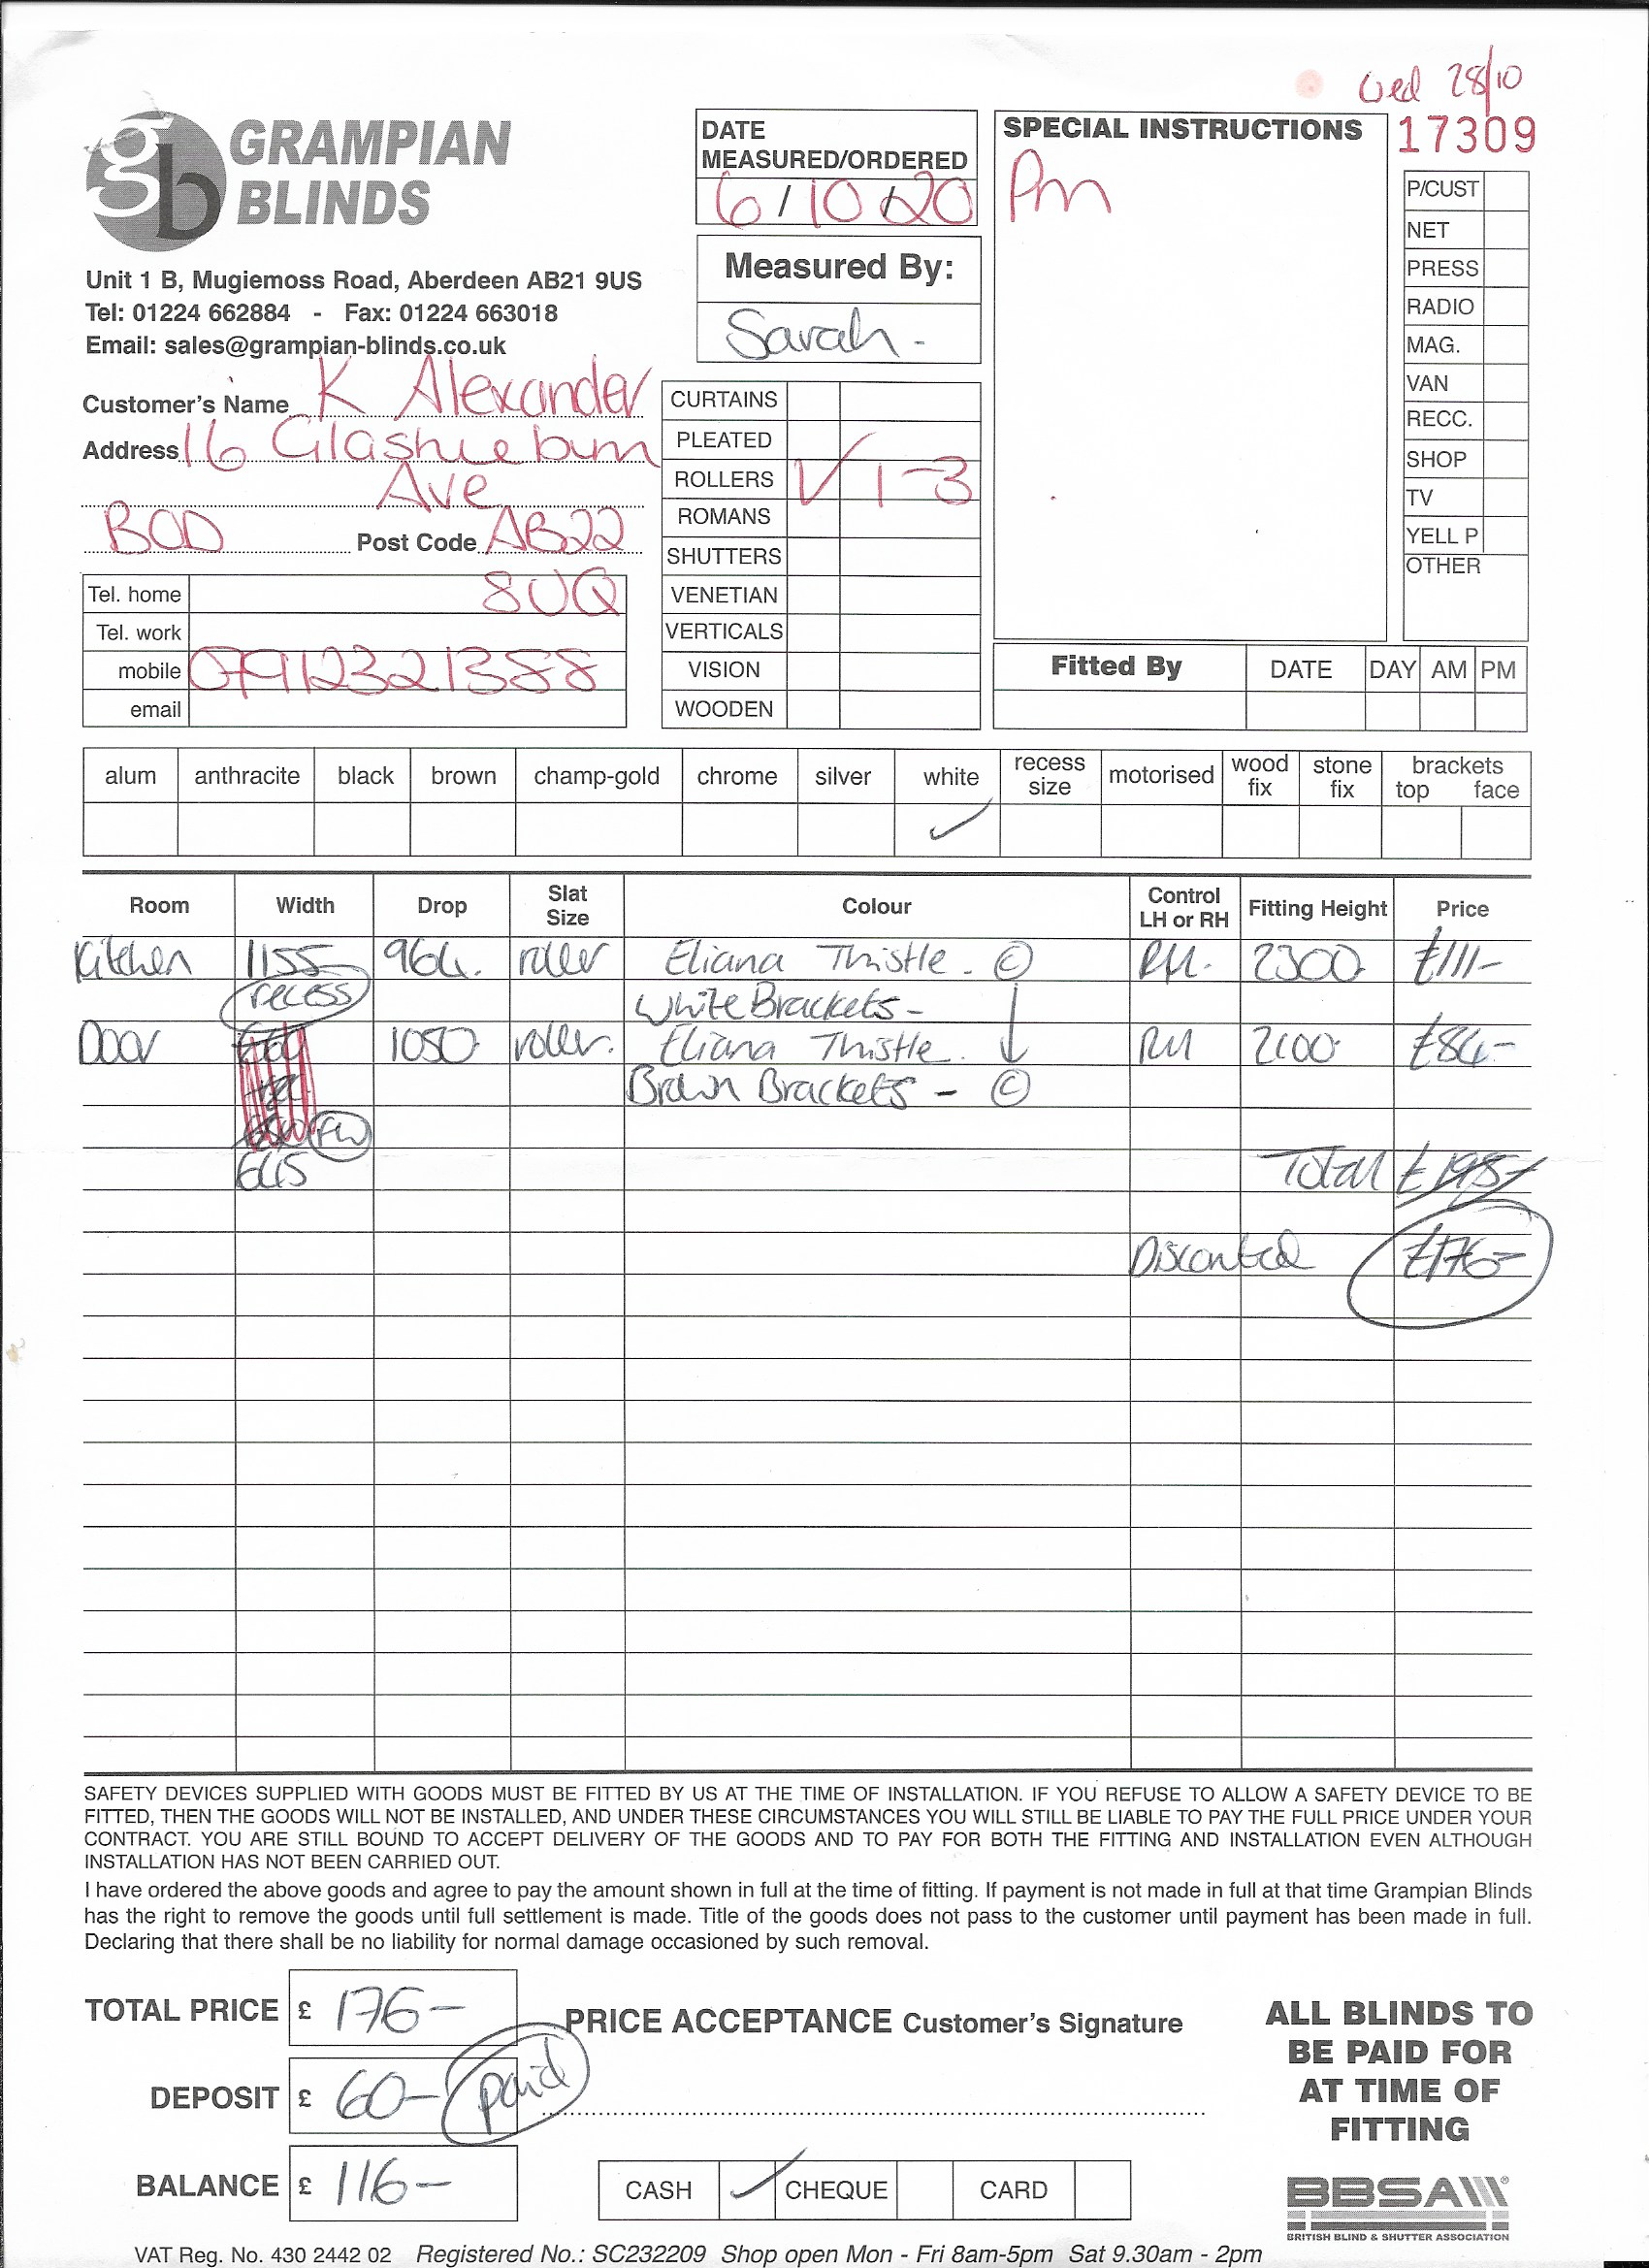 Wed 28/10
17309
gb GRAMPIAN
BLINDS
Unit 1 B, Mugiemoss Road, Aberdeen AB21 9US
Tel: 01224 662884 - Fax: 01224 663018
Email: sales@grampian-blinds.co.uk
DATE
MEASURED/ORDERED
6/10/20
Measured By:
Sarah -
SPECIAL INSTRUCTIONS
Pm
P/CUST
NET
PRESS
RADIO
MAG.
VAN
RECC.
SHOP
TV
YELL P
OTHER
Customer's Name K Alexander
Address 16 Glashieburn
Ave
BOD Post Code AB22
8UQ
Tel. home
Tel. work
mobile 07912321388
email
CURTAINS
PLEATED
ROLLERS ✓ 1-3
ROMANS
SHUTTERS
VENETIAN
VERTICALS
VISION
WOODEN
Fitted By DATE DAY AM PM
alum anthracite black brown champ-gold chrome silver white recess size motorised wood fix stone fix brackets top face
✓
Room Width Drop Slat Size Colour Control LH or RH Fitting Height Price
Kitchen 1155 964. roller Eliana Thistle. © RH. 2300 £111-
recess White Brackets -
Door 1050 roller. Eliana Thistle. ↓ RH 2100 £84-
Brown Brackets - ©
FW
645 Total £195-
Discounted £176-
SAFETY DEVICES SUPPLIED WITH GOODS MUST BE FITTED BY US AT THE TIME OF INSTALLATION. IF YOU REFUSE TO ALLOW A SAFETY DEVICE TO BE
FITTED, THEN THE GOODS WILL NOT BE INSTALLED, AND UNDER THESE CIRCUMSTANCES YOU WILL STILL BE LIABLE TO PAY THE FULL PRICE UNDER YOUR
CONTRACT. YOU ARE STILL BOUND TO ACCEPT DELIVERY OF THE GOODS AND TO PAY FOR BOTH THE FITTING AND INSTALLATION EVEN ALTHOUGH
INSTALLATION HAS NOT BEEN CARRIED OUT.
I have ordered the above goods and agree to pay the amount shown in full at the time of fitting. If payment is not made in full at that time Grampian Blinds
has the right to remove the goods until full settlement is made. Title of the goods does not pass to the customer until payment has been made in full.
Declaring that there shall be no liability for normal damage occasioned by such removal.
TOTAL PRICE £ 176-
DEPOSIT £ 60- paid
BALANCE £ 116-
PRICE ACCEPTANCE Customer's Signature
CASH ✓ CHEQUE CARD
ALL BLINDS TO
BE PAID FOR
AT TIME OF
FITTING
BBSA
BRITISH BLIND & SHUTTER ASSOCIATION
VAT Reg. No. 430 2442 02 Registered No.: SC232209 Shop open Mon - Fri 8am-5pm Sat 9.30am - 2pm